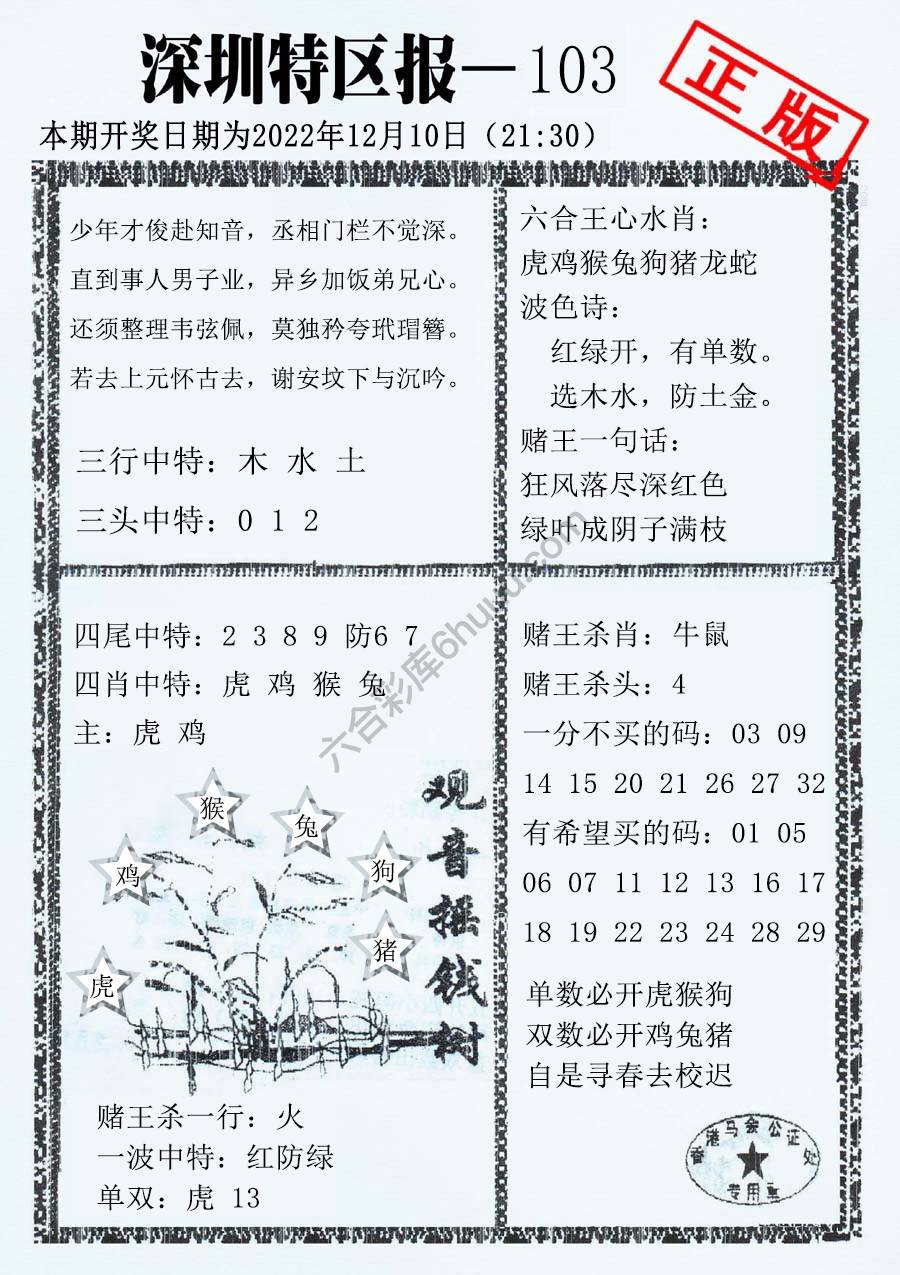 深圳特区报—103
正版
本期开奖日期为2022年12月10日（21:30）
少年才俊赴知音，丞相门栏不觉深。
直到事人男子业，异乡加饭弟兄心。
还须整理韦弦佩，莫独矜夸玳瑁簪。
若去上元怀古去，谢安坟下与沉吟。
三行中特：木 水 土
三头中特：0 1 2
六合王心水肖：
虎鸡猴兔狗猪龙蛇
波色诗：
红绿开，有单数。
选木水，防土金。
赌王一句话：
狂风落尽深红色
绿叶成阴子满枝
四尾中特：2 3 8 9 防6 7
四肖中特：虎 鸡 猴 兔
主：虎 鸡
猴
兔
鸡
狗
猪
虎
观音摇钱树
赌王杀一行：火
一波中特：红防绿
单双：虎 13
赌王杀肖：牛鼠
赌王杀头：4
一分不买的码：03 09
14 15 20 21 26 27 32
有希望买的码：01 05
06 07 11 12 13 16 17
18 19 22 23 24 28 29
单数必开虎猴狗
双数必开鸡兔猪
自是寻春去校迟
香港马会公证处
专用章
六合彩库6huuu.com